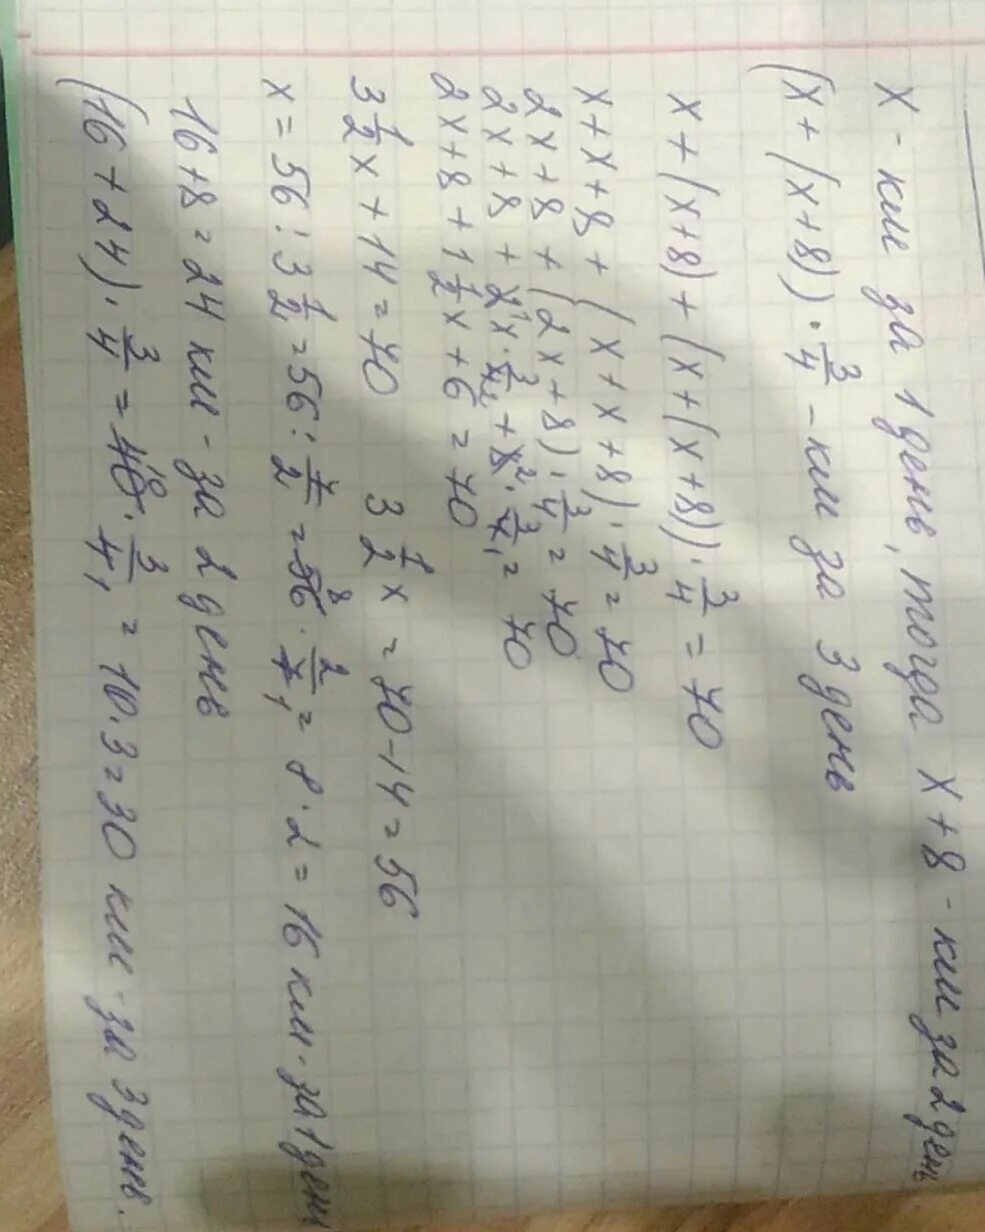 x - км за 1 день, тогда x+8 - км за 2 день
(x + (x+8)) · 3/4 - км за 3 день
x + (x+8) + (x+(x+8)) · 3/4 = 70
x + x + 8 + (x + x + 8) · 3/4 = 70
2x + 8 + (2x + 8) · 3/4 = 70
2x + 8 + 2¹x · 3/4₂ + 8² · 3/4₁ = 70
2x + 8 + 1 1/2 x + 6 = 70
3 1/2 x + 14 = 70 3 1/2 x = 70 - 14 = 56
x = 56 : 3 1/2 = 56 : 7/2 = 56⁸ · 2/7₁ = 8 · 2 = 16 км - за 1 день
16 + 8 = 24 км - за 2 день
(16 + 24) · 3/4 = 40¹⁰ · 3/4₁ = 10 · 3 = 30 км - за 3 день.